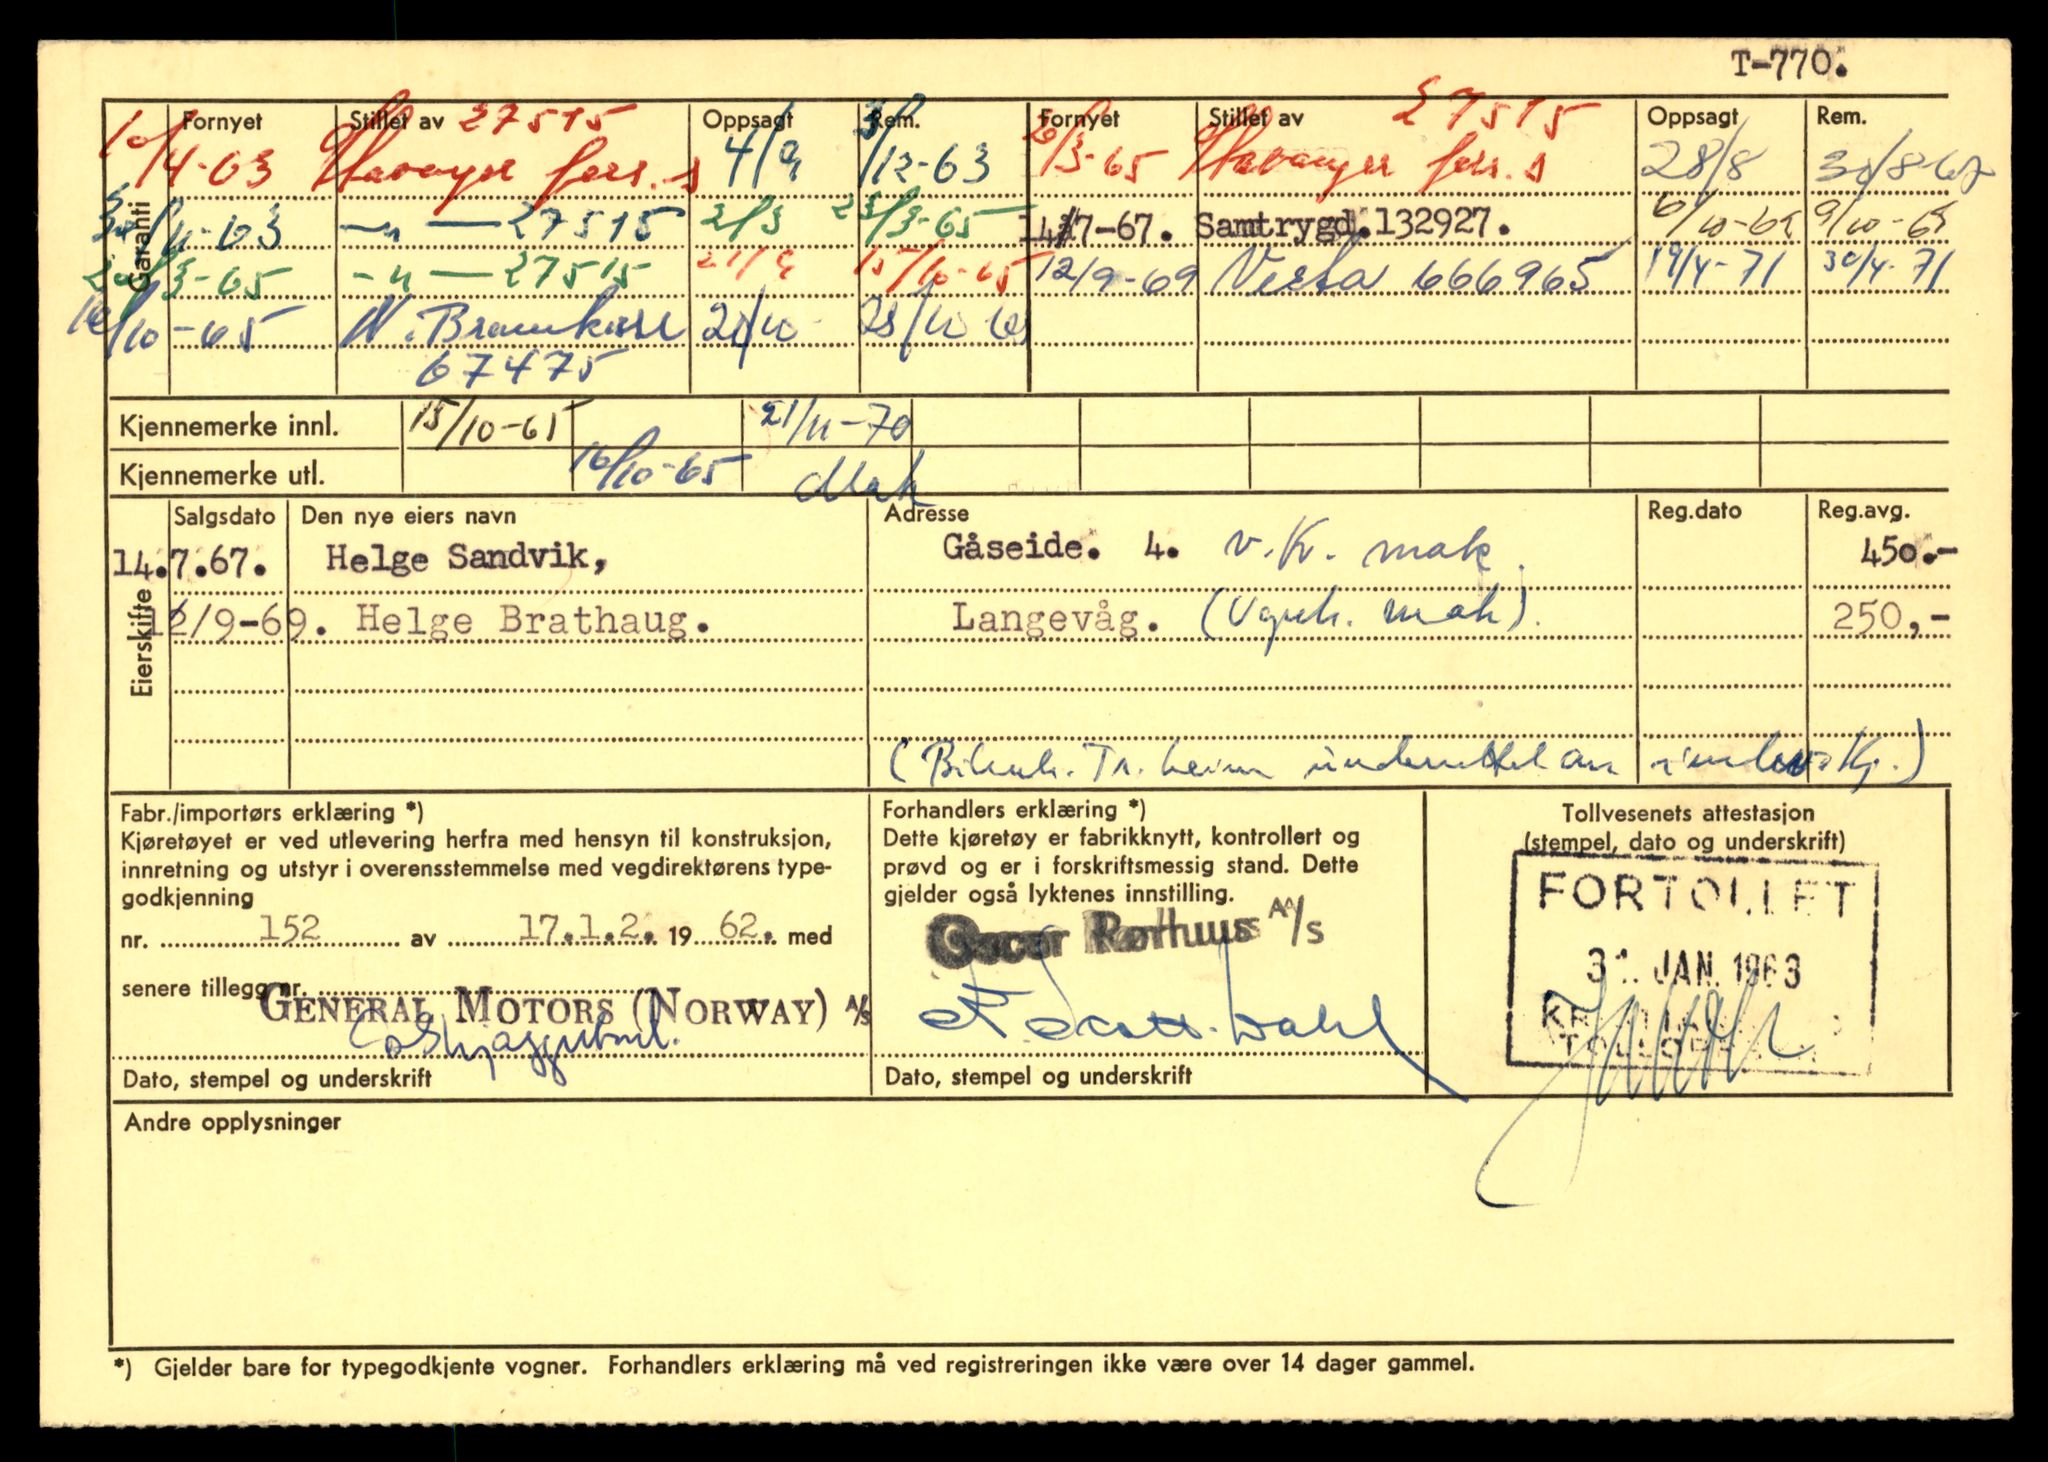 T-770.
Garanti
Fornyet Stillet av 27515 Oppsagt Rem. Fornyet Stillet av 27515 Oppsagt Rem.
10/4-63 Stavanger fors. s 4/9 3/12-63 6/3-65 Stavanger fors. s 28/8 30/8-67
30/11-63 -"- 27515 2/3 23/3-65 14/7-67. Samtrygd.132927. 6/10-69 9/10-69
20/3-65 -"- 27515 21/9 15/10-65 12/9-69 Vesta 666965 19/4-71 30/4-71
16/10-65 N. Brannkasse 21/10 28/10
67475
Kjennemerke innl. 15/10-65 21/11-70
Kjennemerke utl. 16/10-65 Mak
Eierskifte
Salgsdato Den nye eiers navn Adresse Reg.dato Reg.avg.
14.7.67. Helge Sandvik, Gåseide. 4. v. Kv. mak. 450.-
12/9-69. Helge Brathaug. Langevåg. (Vognk. mak). 250,-
( Tr.heim underrettet om innlev. Kj.)
Fabr./importørs erklæring *)
Kjøretøyet er ved utlevering herfra med hensyn til konstruksjon,
innretning og utstyr i overensstemmelse med vegdirektørens type-
godkjenning
nr. 152 av 17.1.2. 19 62. med
senere tillegg nr.
GENERAL MOTORS (NORWAY) A/S
Dato, stempel og underskrift
Forhandlers erklæring *)
Dette kjøretøy er fabrikknytt, kontrollert og
prøvd og er i forskriftsmessig stand. Dette
gjelder også lyktenes innstilling.
Oscar Røthuus A/S
Dato, stempel og underskrift
Tollvesenets attestasjon
(stempel, dato og underskrift)
FORTOLLET
31. JAN. 1963
Andre opplysninger
*) Gjelder bare for typegodkjente vogner. Forhandlers erklæring må ved registreringen ikke være over 14 dager gammel.